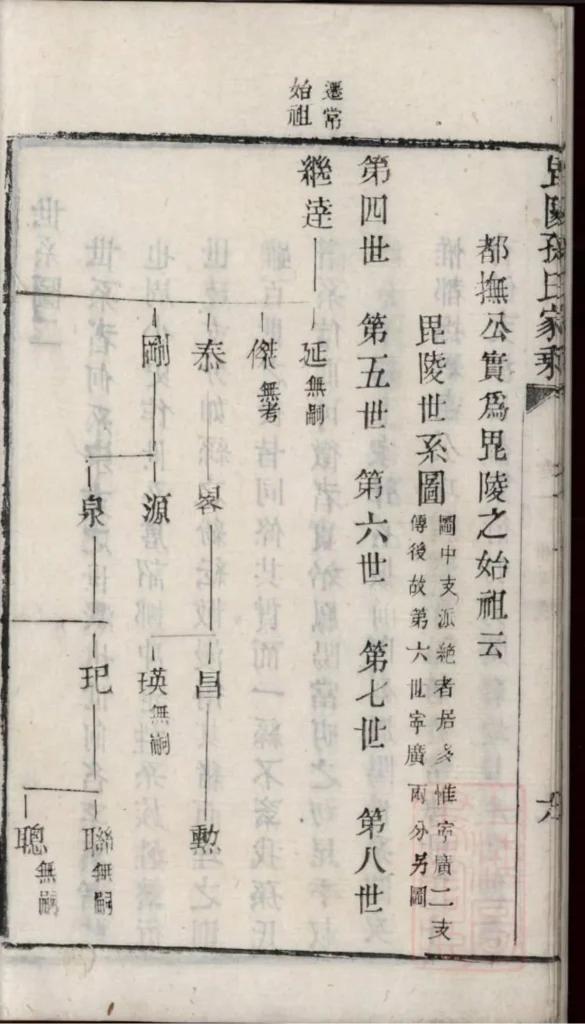 毘陵孫氏家乘
都撫公實爲毘陵之始祖云
毘陵世系圖
圖中支派絕者居多惟寧廣二支
傳後故第六世寧廣兩分另圖
第四世 第五世 第六世 第七世 第八世
遷常
始祖
繼逵 延無嗣
傑無考
泰 畧 昌 勲
剛 源 瑛無嗣
泉 玘 聯無嗣
聰無嗣